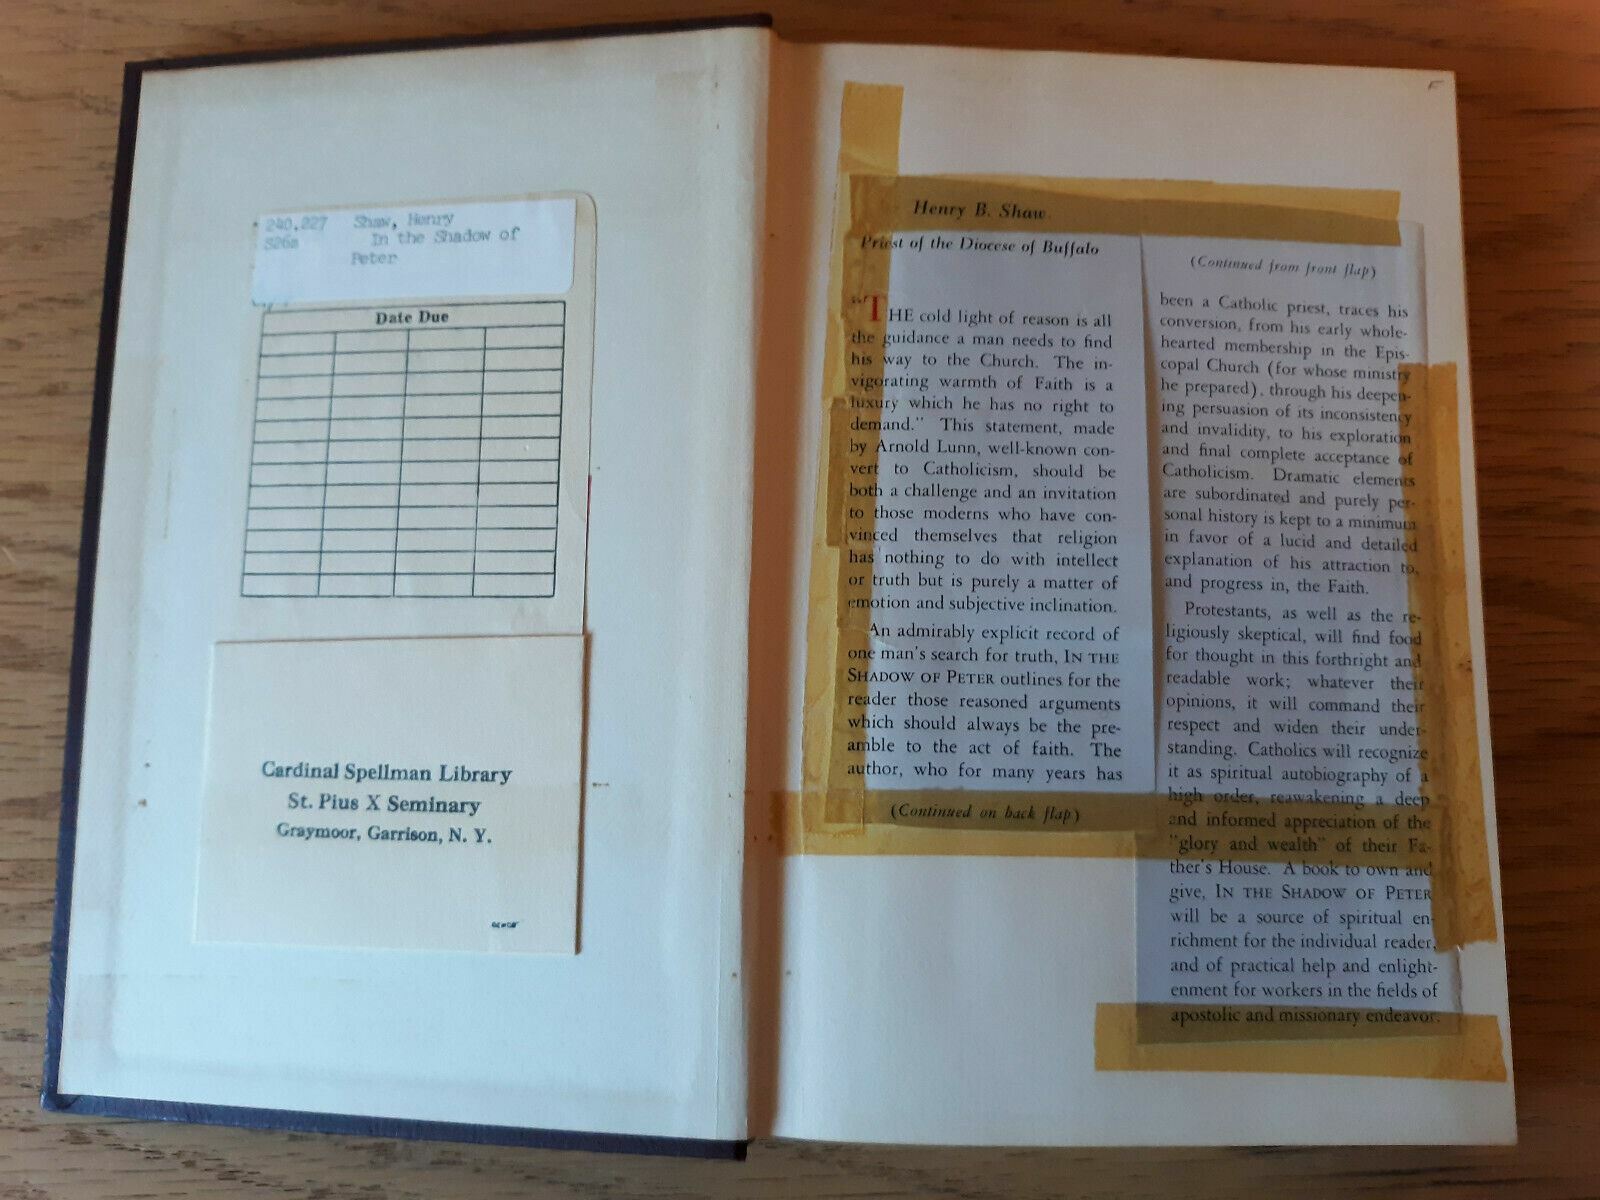 240.227 Shaw, Henry
S26s In the Shadow of
Peter
Date Due
Cardinal Spellman Library
St. Pius X Seminary
Graymoor, Garrison, N. Y.
Henry B. Shaw
Priest of the Diocese of Buffalo
"THE cold light of reason is all
the guidance a man needs to find
his way to the Church. The in-
vigorating warmth of Faith is a
luxury which he has no right to
demand." This statement, made
by Arnold Lunn, well-known con-
vert to Catholicism, should be
both a challenge and an invitation
to those moderns who have con-
vinced themselves that religion
has nothing to do with intellect
or truth but is purely a matter of
emotion and subjective inclination.
An admirably explicit record of
one man's search for truth, IN THE
SHADOW OF PETER outlines for the
reader those reasoned arguments
which should always be the pre-
amble to the act of faith. The
author, who for many years has
(Continued on back flap)
(Continued from front flap)
been a Catholic priest, traces his
conversion, from his early whole-
hearted membership in the Epis-
copal Church (for whose ministry
he prepared), through his deepen-
ing persuasion of its inconsistency
and invalidity, to his exploration
and final complete acceptance of
Catholicism. Dramatic elements
are subordinated and purely per-
sonal history is kept to a minimum
in favor of a lucid and detailed
explanation of his attraction to,
and progress in, the Faith.
Protestants, as well as the re-
ligiously skeptical, will find food
for thought in this forthright and
readable work; whatever their
opinions, it will command their
respect and widen their under-
standing. Catholics will recognize
it as spiritual autobiography of a
high order, reawakening a deep
and informed appreciation of the
"glory and wealth" of their Fa-
ther's House. A book to own and
give, IN THE SHADOW OF PETER
will be a source of spiritual en-
richment for the individual reader,
and of practical help and enlight-
enment for workers in the fields of
apostolic and missionary endeavor.